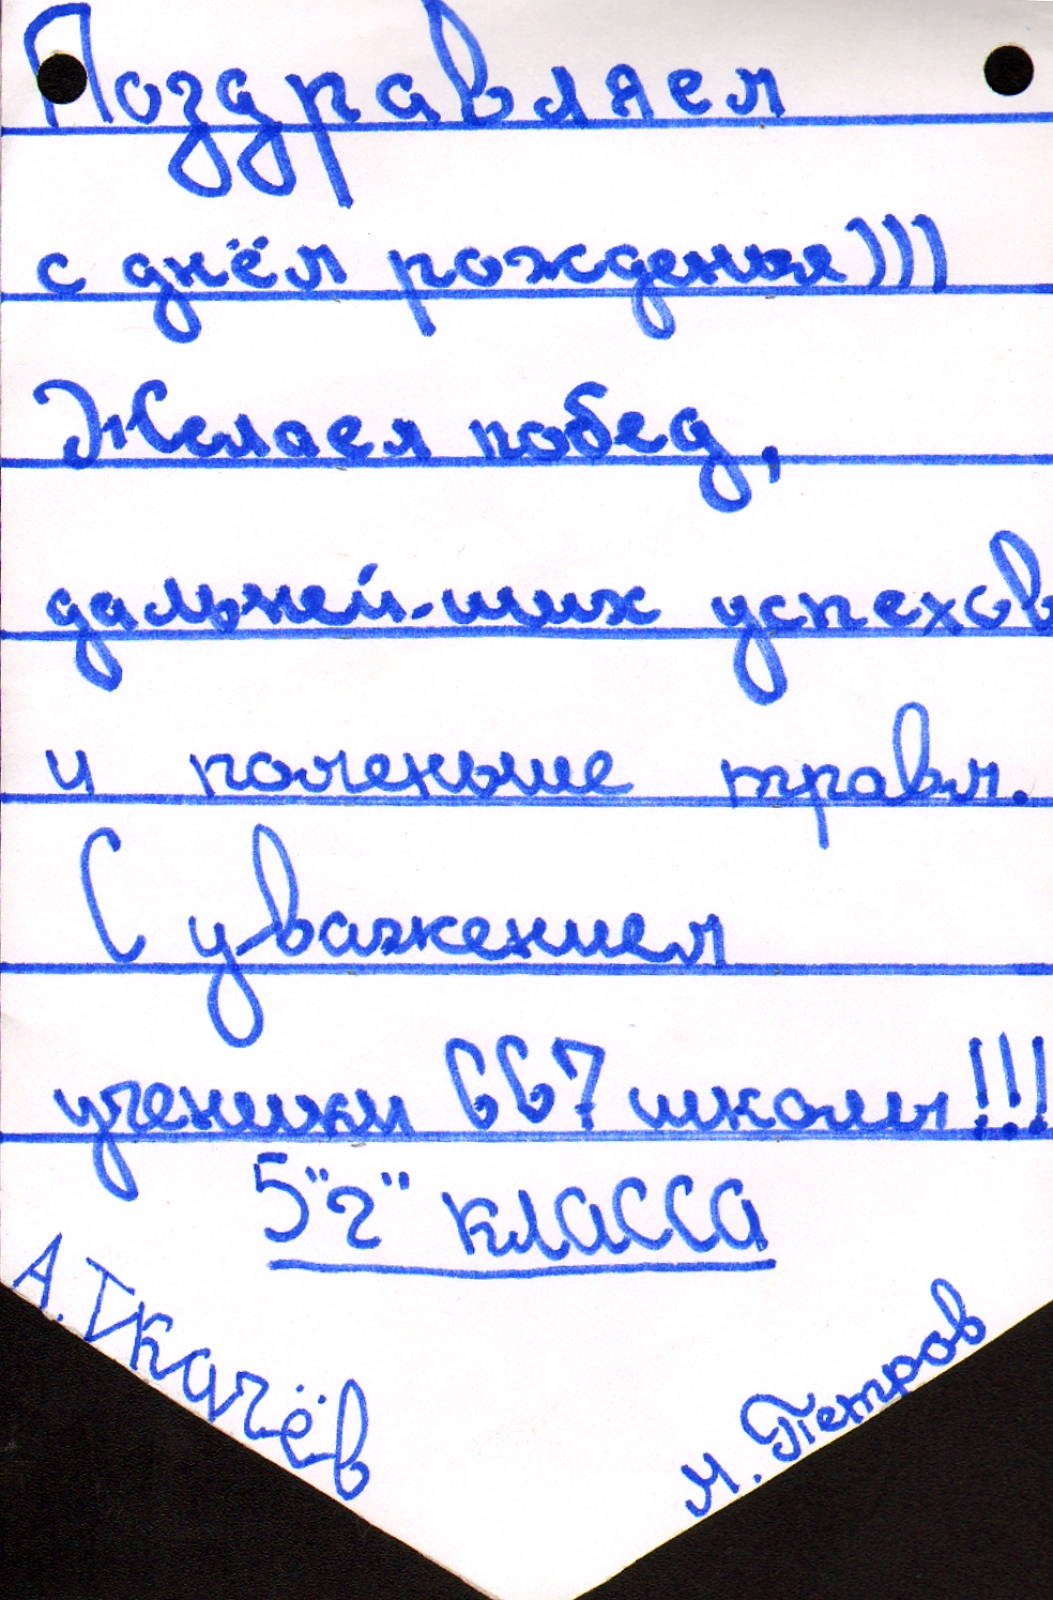 Поздравляем
с днём рожденья)))
Желаем побед,
дальней-ших успехов
и поменьше травм.
С уважением
ученики 667 школы!!!
5"г" класса
А. Ткачёв
М. Петров